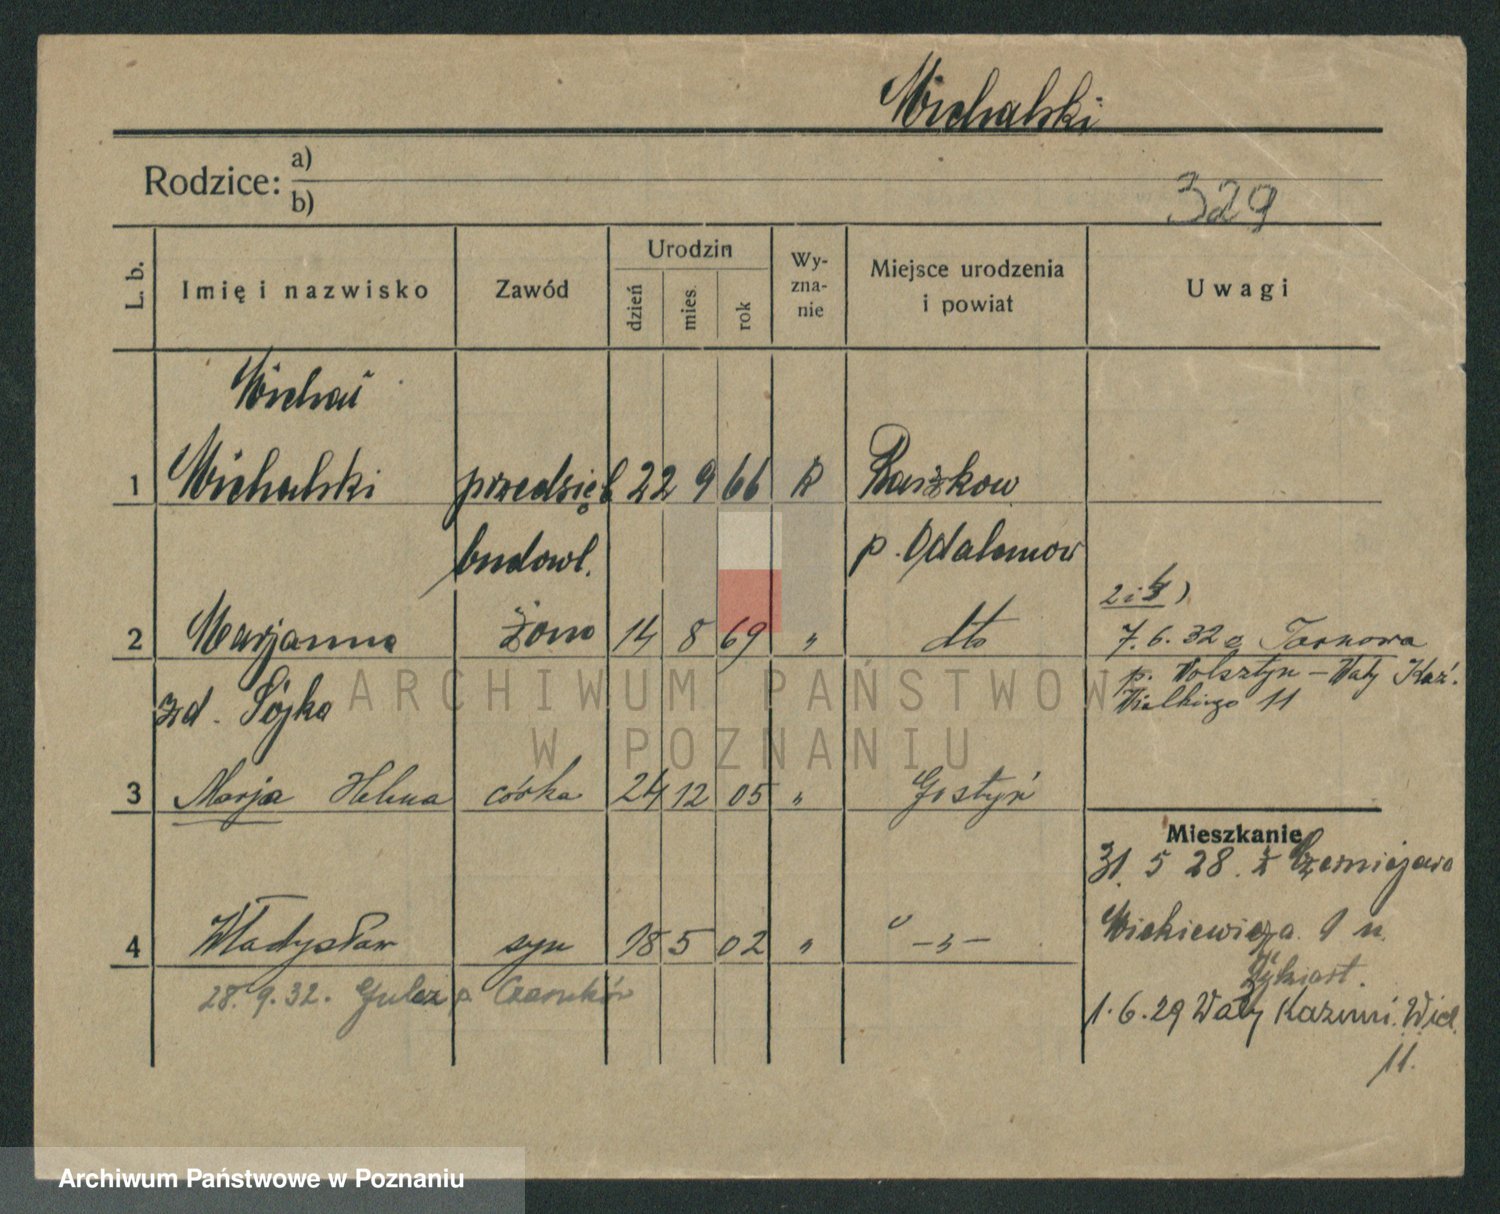 Michalski
Rodzice: a)
b)
329
L. b. Imię i nazwisko Zawód Urodzin dzień mies. rok Wy-zna-nie Miejsce urodzenia i powiat Uwagi
Michał
1 Michalski przedsięb 22 9 66 R Raszkow
budowl. p. Odalanow
2 Marjanna żona 14 8 69 " dto
zd. Sójka
2 i 3)
7.6.32 Tarnowa
p. Wolsztyn – Wały Kaź.
Wielkiego 11
ARCHIWUM PAŃSTWOW
W POZNANIU
3 Marja Helena córka 24 12 05 " Gostyń
Mieszkanie
31. 5 28. z Czerniejewa
4 Władysław syn 18 5 02 " – " –
28.9.32. Gulcz p. Czarnków
Mickiewicza 9
1.6.29 Wały Kazimi. Wiel.
11.
Archiwum Państwowe w Poznaniu